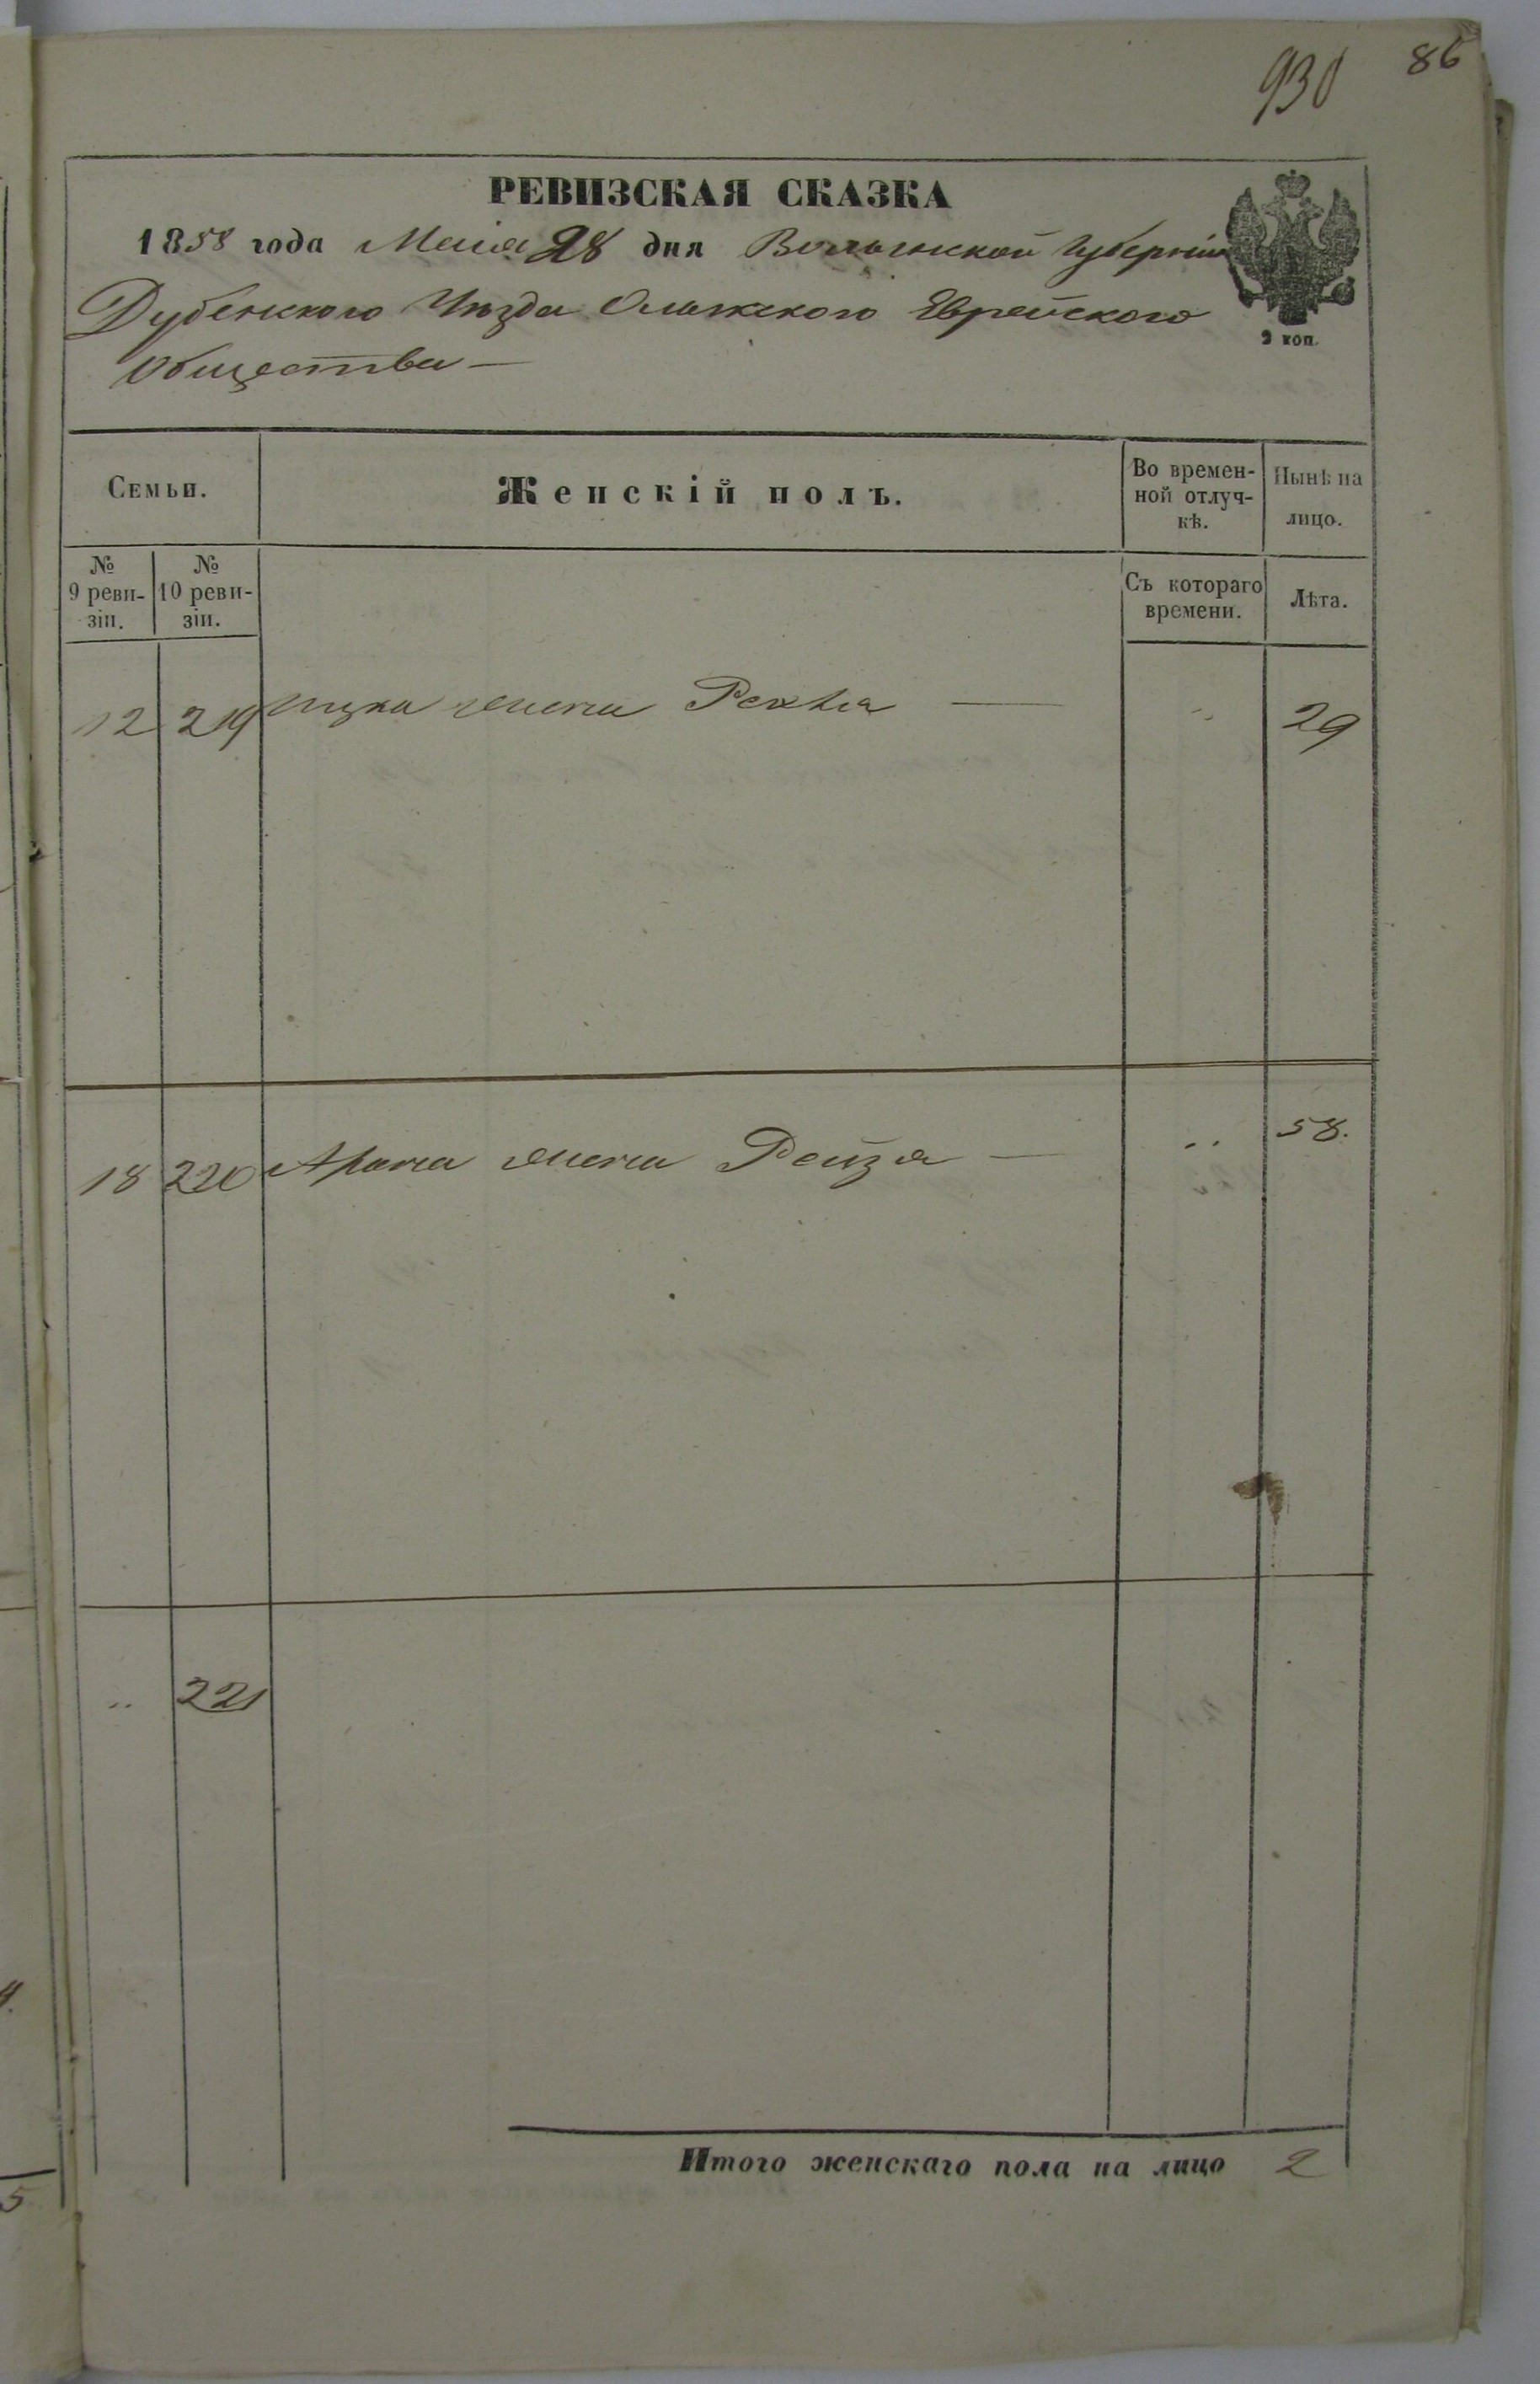 930 86
РЕВИЗСКАЯ СКАЗКА
1858 года Маія 28 дня Волынской Губерніи
Дубенского Уѣзда Олыкского Еврейского
Общества —
2 коп.
Семьи.
Женскій полъ.
Во времен-
ной отлуч-
кѣ.
Нынѣ на
лицо.
№
9 реви-
зіи.
№
10 реви-
зіи.
Съ котораго
времени.
Лѣта.
12 219 Ицка жена Рехля — " 29
18 220 Арона жена Рейза — " 58.
" 221
Итого женскаго пола на лицо 2